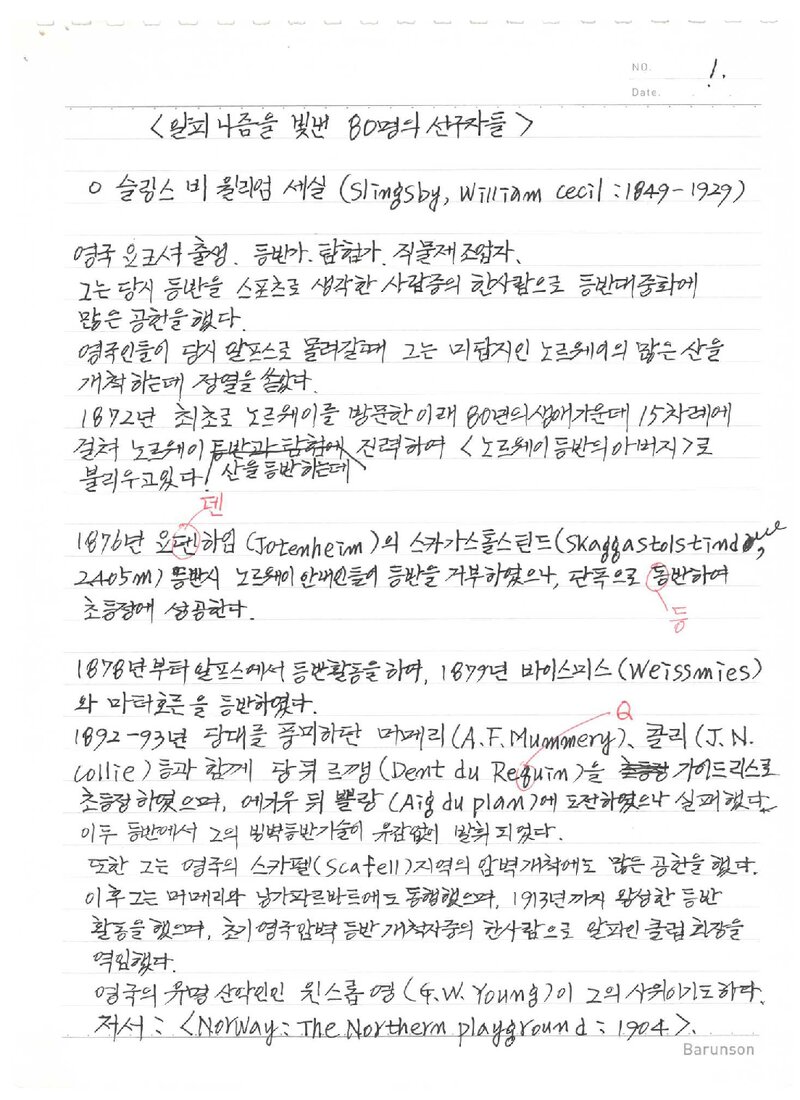 NO. 1.
Date.
< 알피니즘을 빛낸 80명의 선구자들 >
○ 슬링스비 윌리엄 세실 (Slingsby, William cecil : 1849-1929)
영국 요크셔 출생. 등반가. 탐험가. 직물제조업자.
그는 당시 등반을 스포츠로 생각한 사람중의 한사람으로 등반대중화에
많은 공헌을 했다.
영국인들이 당시 알프스로 몰려갈때 그는 미답지인 노르웨이의 많은 산을
개척하는데 정열을 쏟았다.
1872년 최초로 노르웨이를 방문한 이래 80년의 생애가운데 15차례에
걸쳐 노르웨이 등반과 탐험에 진력하여 < 노르웨이 등반의 아버지 >로
불리우고있다. 산을 등반하는데
덴
1876년 요텐하임 (Jotenheim)의 스카가스톨스틴드 (Skaggastolstind,
2405m) 등반시 노르웨이 안내인들이 등반을 거부하였으나, 단독으로 동반하여
초등정에 성공한다.
등
1878년부터 알프스에서 등반활동을 하여, 1879년 바이스미스 (Weissmies)
와 마터호른을 등반하였다.
Q
1892-93년 당대를 풍미하던 머메리 (A.F. Mummery), 콜리 (J.N.
collie) 등과 함께 당 뒤 르깽 (Dent du Requin)을 초등정 가이드리스로
초등정하였으며, 에귀유 뒤 쁠랑 (Aig du plan)에 도전하였으나 실패했다.
이두 등반에서 그의 빙벽등반기술이 유감없이 발휘되었다.
또한 그는 영국의 스카펠 (Scafell) 지역의 암벽개척에도 많은 공헌을 했다.
이후 그는 머메리와 낭가파르바트에도 동행했으며, 1913년까지 왕성한 등반
활동을 했으며, 초기 영국암벽 등반 개척자중의 한사람으로 알파인 클럽 회장을
역임했다.
영국의 유명 산악인인 윈스롭 영 (G.W. Young)이 그의 사위이기도하다.
저서 : < Norway : The Northern playground : 1904 >.
Barunson